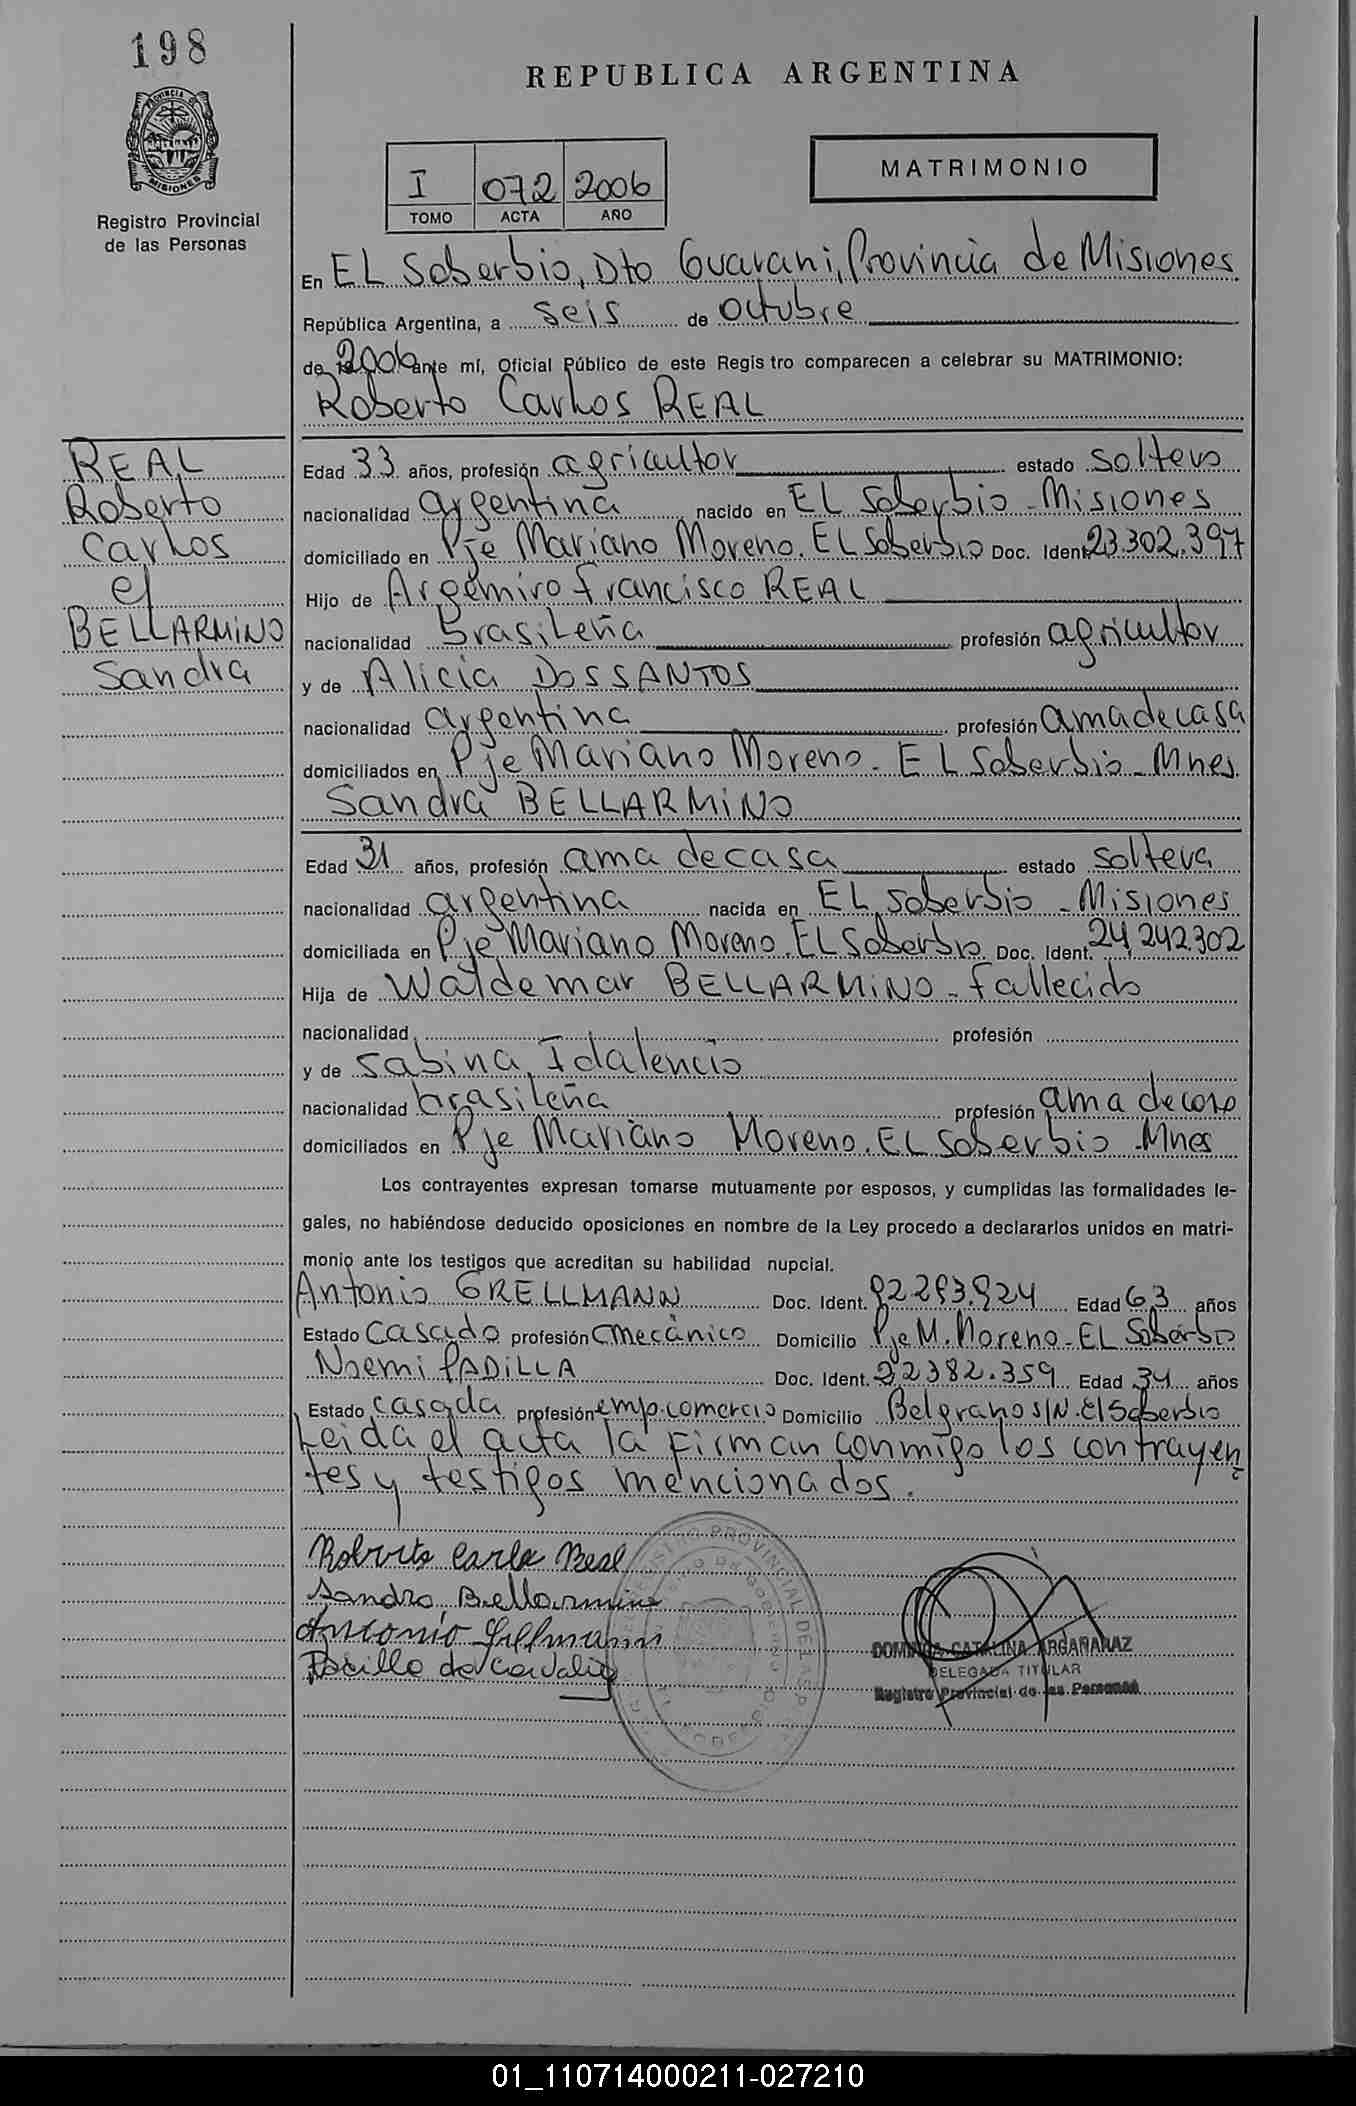 198
REPUBLICA ARGENTINA
PROVINCIA DE
MISIONES
Registro Provincial
de las Personas
I 072 2006
TOMO ACTA AÑO
MATRIMONIO
En EL Soberbio, Dto Guarani, Provincia de Misiones
República Argentina, a seis de octubre
de 2006 ante mí, Oficial Público de este Registro comparecen a celebrar su MATRIMONIO:
Roberto Carlos REAL
REAL
Roberto
Carlos
el
BELLARMINO
Sandra
Edad 33 años, profesión agricultor estado soltero
nacionalidad argentina nacido en EL Soberbio - Misiones
domiciliado en Pje Mariano Moreno. EL Soberbio Doc. Ident. 23.302.397
Hijo de Argemiro Francisco REAL
nacionalidad brasileña profesión agricultor
y de Alicia DOSSANTOS
nacionalidad argentina profesión ama de casa
domiciliados en Pje Mariano Moreno - EL Soberbio - Mnes
Sandra BELLARMINO
Edad 31 años, profesión ama de casa estado soltera
nacionalidad argentina nacida en EL Soberbio - Misiones
domiciliada en Pje Mariano Moreno. EL Soberbio Doc. Ident. 24.242.302
Hija de Waldemar BELLARMINO - fallecido
nacionalidad profesión
y de Sabina Idalencio
nacionalidad brasileña profesión ama de casa
domiciliados en Pje Mariano Moreno. EL Soberbio - Mnes
Los contrayentes expresan tomarse mutuamente por esposos, y cumplidas las formalidades le-
gales, no habiéndose deducido oposiciones en nombre de la Ley procedo a declararlos unidos en matri-
monio ante los testigos que acreditan su habilidad nupcial.
Antonio GRELLMANN Doc. Ident. Edad 63 años
Estado Casado profesión mecánico Domicilio Pje M. Moreno - EL Soberbio
Noemi PADILLA Doc. Ident. 22382.359 Edad 34 años
Estado casada profesión emp. comercio Domicilio Belgrano S/N. El Soberbio
Leida el acta la firman conmigo los contrayen
tes y testigos mencionados.
Roberto Carlos Real
Sandra Bellarmino
Antonio Grellmann
Padilla de
REGISTRO PROVINCIAL DE LAS
DOMINGA CATALINA ARGAÑARAZ
DELEGADA TITULAR
Registro Provincial de las Personas
01_110714000211-027210